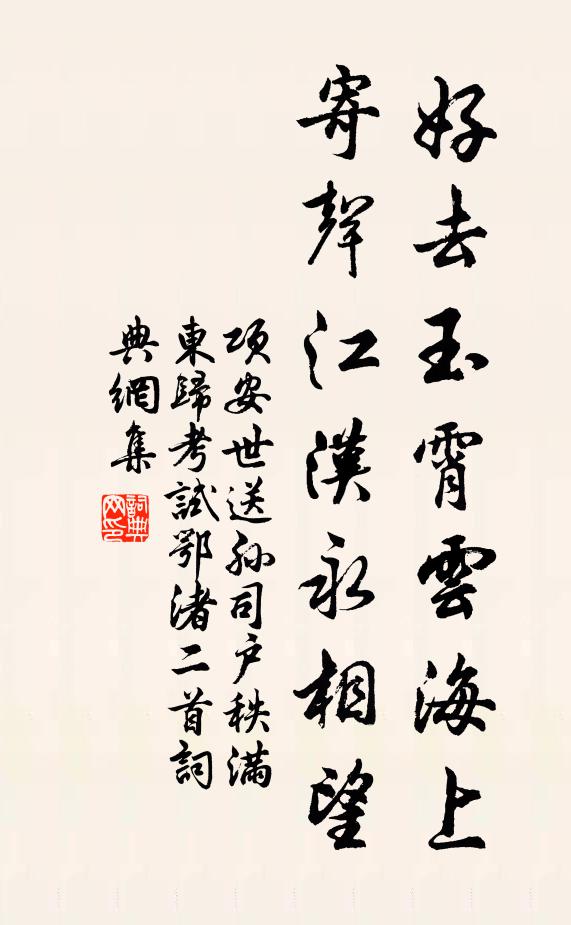 好去玉霄雲海上
寄聲江漢永相望
項安世送孫司戶秩滿
東歸考試鄂渚二首詞
典網集
詞典網印